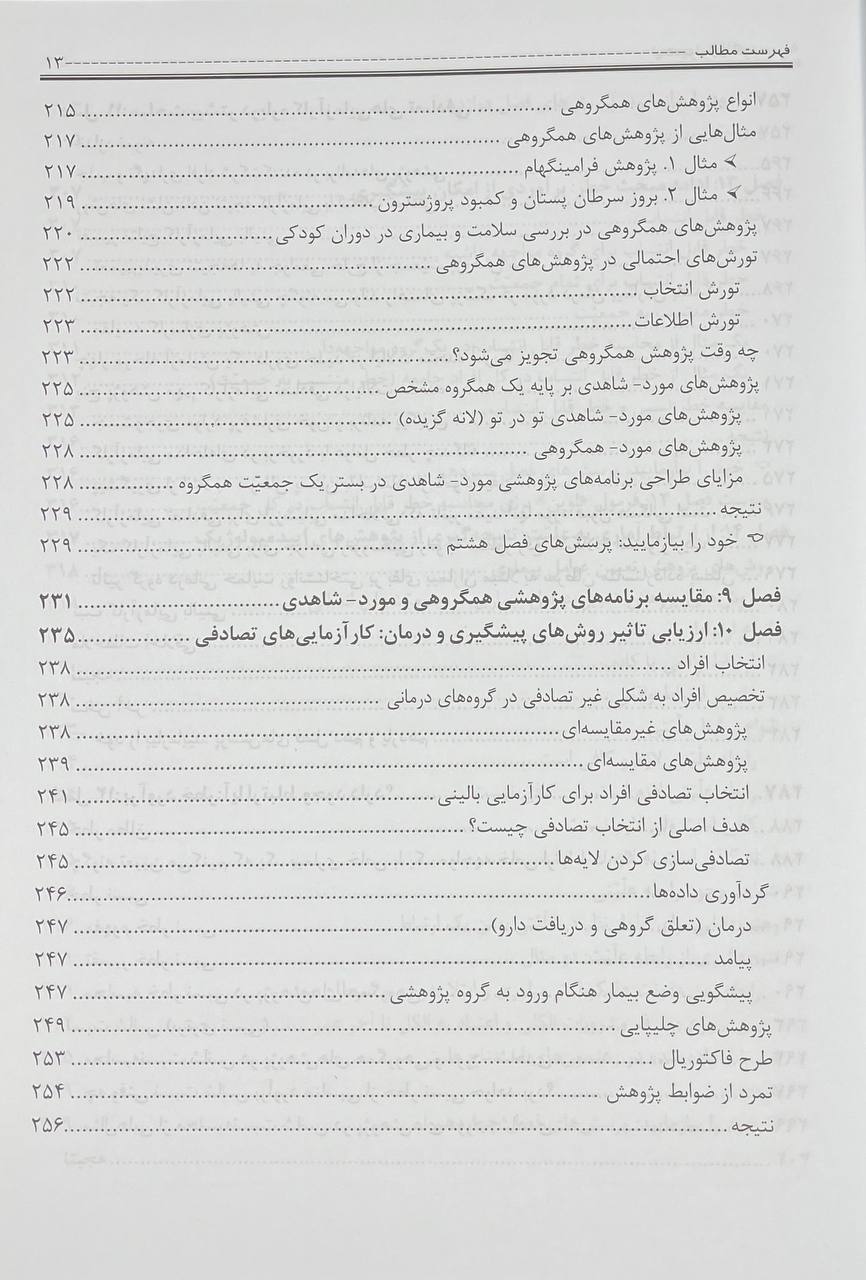 فهرست مطالب ---------- ۱۳
انواع پژوهش‌های همگروهی .......... ۲۱۵
مثال‌هایی از پژوهش‌های همگروهی .......... ۲۱۷
➢ مثال ۱. پژوهش فرامینگهام .......... ۲۱۷
➢ مثال ۲. بروز سرطان پستان و کمبود پروژسترون .......... ۲۱۹
پژوهش‌های همگروهی در بررسی سلامت و بیماری در دوران کودکی .......... ۲۲۰
تورش‌های احتمالی در پژوهش‌های همگروهی .......... ۲۲۲
تورش انتخاب .......... ۲۲۲
تورش اطلاعات .......... ۲۲۳
چه وقت پژوهش همگروهی تجویز می‌شود؟ .......... ۲۲۳
پژوهش‌های مورد- شاهدی بر پایه یک همگروه مشخص .......... ۲۲۵
پژوهش‌های مورد- شاهدی تو در تو (لانه گزیده) .......... ۲۲۵
پژوهش‌های مورد- همگروهی .......... ۲۲۸
مزایای طراحی برنامه‌های پژوهشی مورد- شاهدی در بستر یک جمعیّت همگروه .......... ۲۲۸
نتیجه .......... ۲۲۹
☜ خود را بیازمایید: پرسش‌های فصل هشتم .......... ۲۲۹
فصل ۹: مقایسه برنامه‌های پژوهشی همگروهی و مورد- شاهدی .......... ۲۳۱
فصل ۱۰: ارزیابی تاثیر روش‌های پیشگیری و درمان: کارآزمایی‌های تصادفی .......... ۲۳۵
انتخاب افراد .......... ۲۳۸
تخصیص افراد به شکلی غیر تصادفی در گروه‌های درمانی .......... ۲۳۸
پژوهش‌های غیرمقایسه‌ای .......... ۲۳۸
پژوهش‌های مقایسه‌ای .......... ۲۳۹
انتخاب تصادفی افراد برای کارآزمایی بالینی .......... ۲۴۱
هدف اصلی از انتخاب تصادفی چیست؟ .......... ۲۴۵
تصادفی‌سازی کردن لایه‌ها .......... ۲۴۵
گردآوری داده‌ها .......... ۲۴۶
درمان (تعلق گروهی و دریافت دارو) .......... ۲۴۷
پیامد .......... ۲۴۷
پیشگویی وضع بیمار هنگام ورود به گروه پژوهشی .......... ۲۴۷
پژوهش‌های چلیپایی .......... ۲۴۹
طرح فاکتوریال .......... ۲۵۳
تمرد از ضوابط پژوهش .......... ۲۵۴
نتیجه .......... ۲۵۶